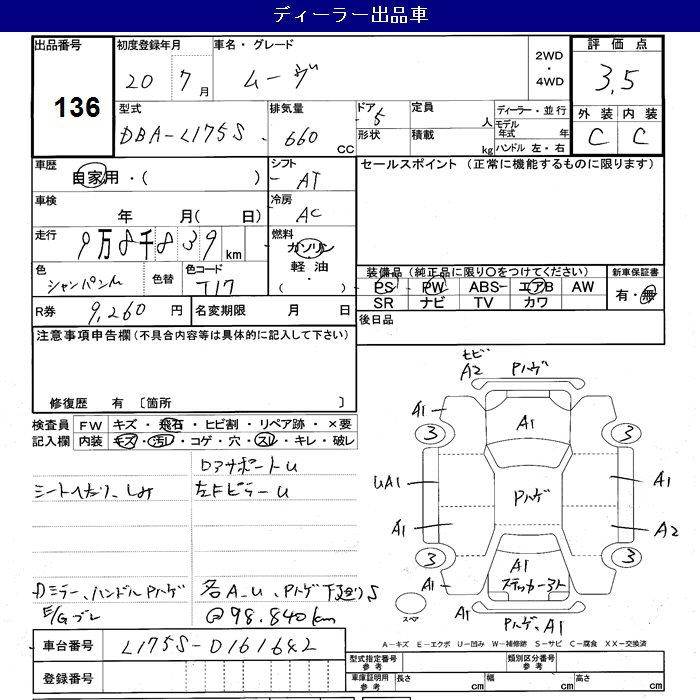 ディーラー出品車
出品番号 136
初度登録年月 20 7月
車名・グレード ムーヴ
2WD・4WD
評価点 3.5
型式 DBA-L175S
排気量 660 CC
ドア 5
形状
定員 人
積載 kg
ディーラー・並行
モデル年式 年
ハンドル 左・右
外装 C
内装 C
車歴 自家用・( )
シフト AT
セールスポイント (正常に機能するものに限ります)
車検 年 月( 日)
冷房 AC
走行 9万8千839km
燃料 ガソリン 軽油 ( )
色 シャンパンM
色替
色コード T17
装備品 (純正品に限り○をつけてください)
PS PW ABS エアB AW
SR ナビ TV カワ
新車保証書 有・無
R券 9,260円
名変期限 月 日
後日品
注意事項申告欄 (不具合内容等は具体的に記入して下さい)
修復歴 有 〔箇所 〕
検査員記入欄
FW キズ・飛石・ヒビ割・リペア跡・×要
内装 キズ・汚レ・コゲ・穴・スレ・キレ・破レ
DアサポートU
シートへたり、しみ
左FピラーU
Dミラー、ハンドルPハゲ
各A、U、Pハゲ 下廻りS
E/Gブレ
@98.840km
モビ
A2 Pハゲ
A1
A1
3
3
UA1
Pハゲ
A1
A1
A2
3
3
A1
A1
ステッカー3ト
A1
スペア
A1
Pハゲ、A1
A-キズ E-エクボ U-凹み W-補修跡 S-サビ C-腐食 XX-交換済
車台番号 L175S-0161642
登録番号
型式指定番号 参考
類別区分番号 参考
車庫証明用 参考
長さ cm
幅 cm
高さ cm